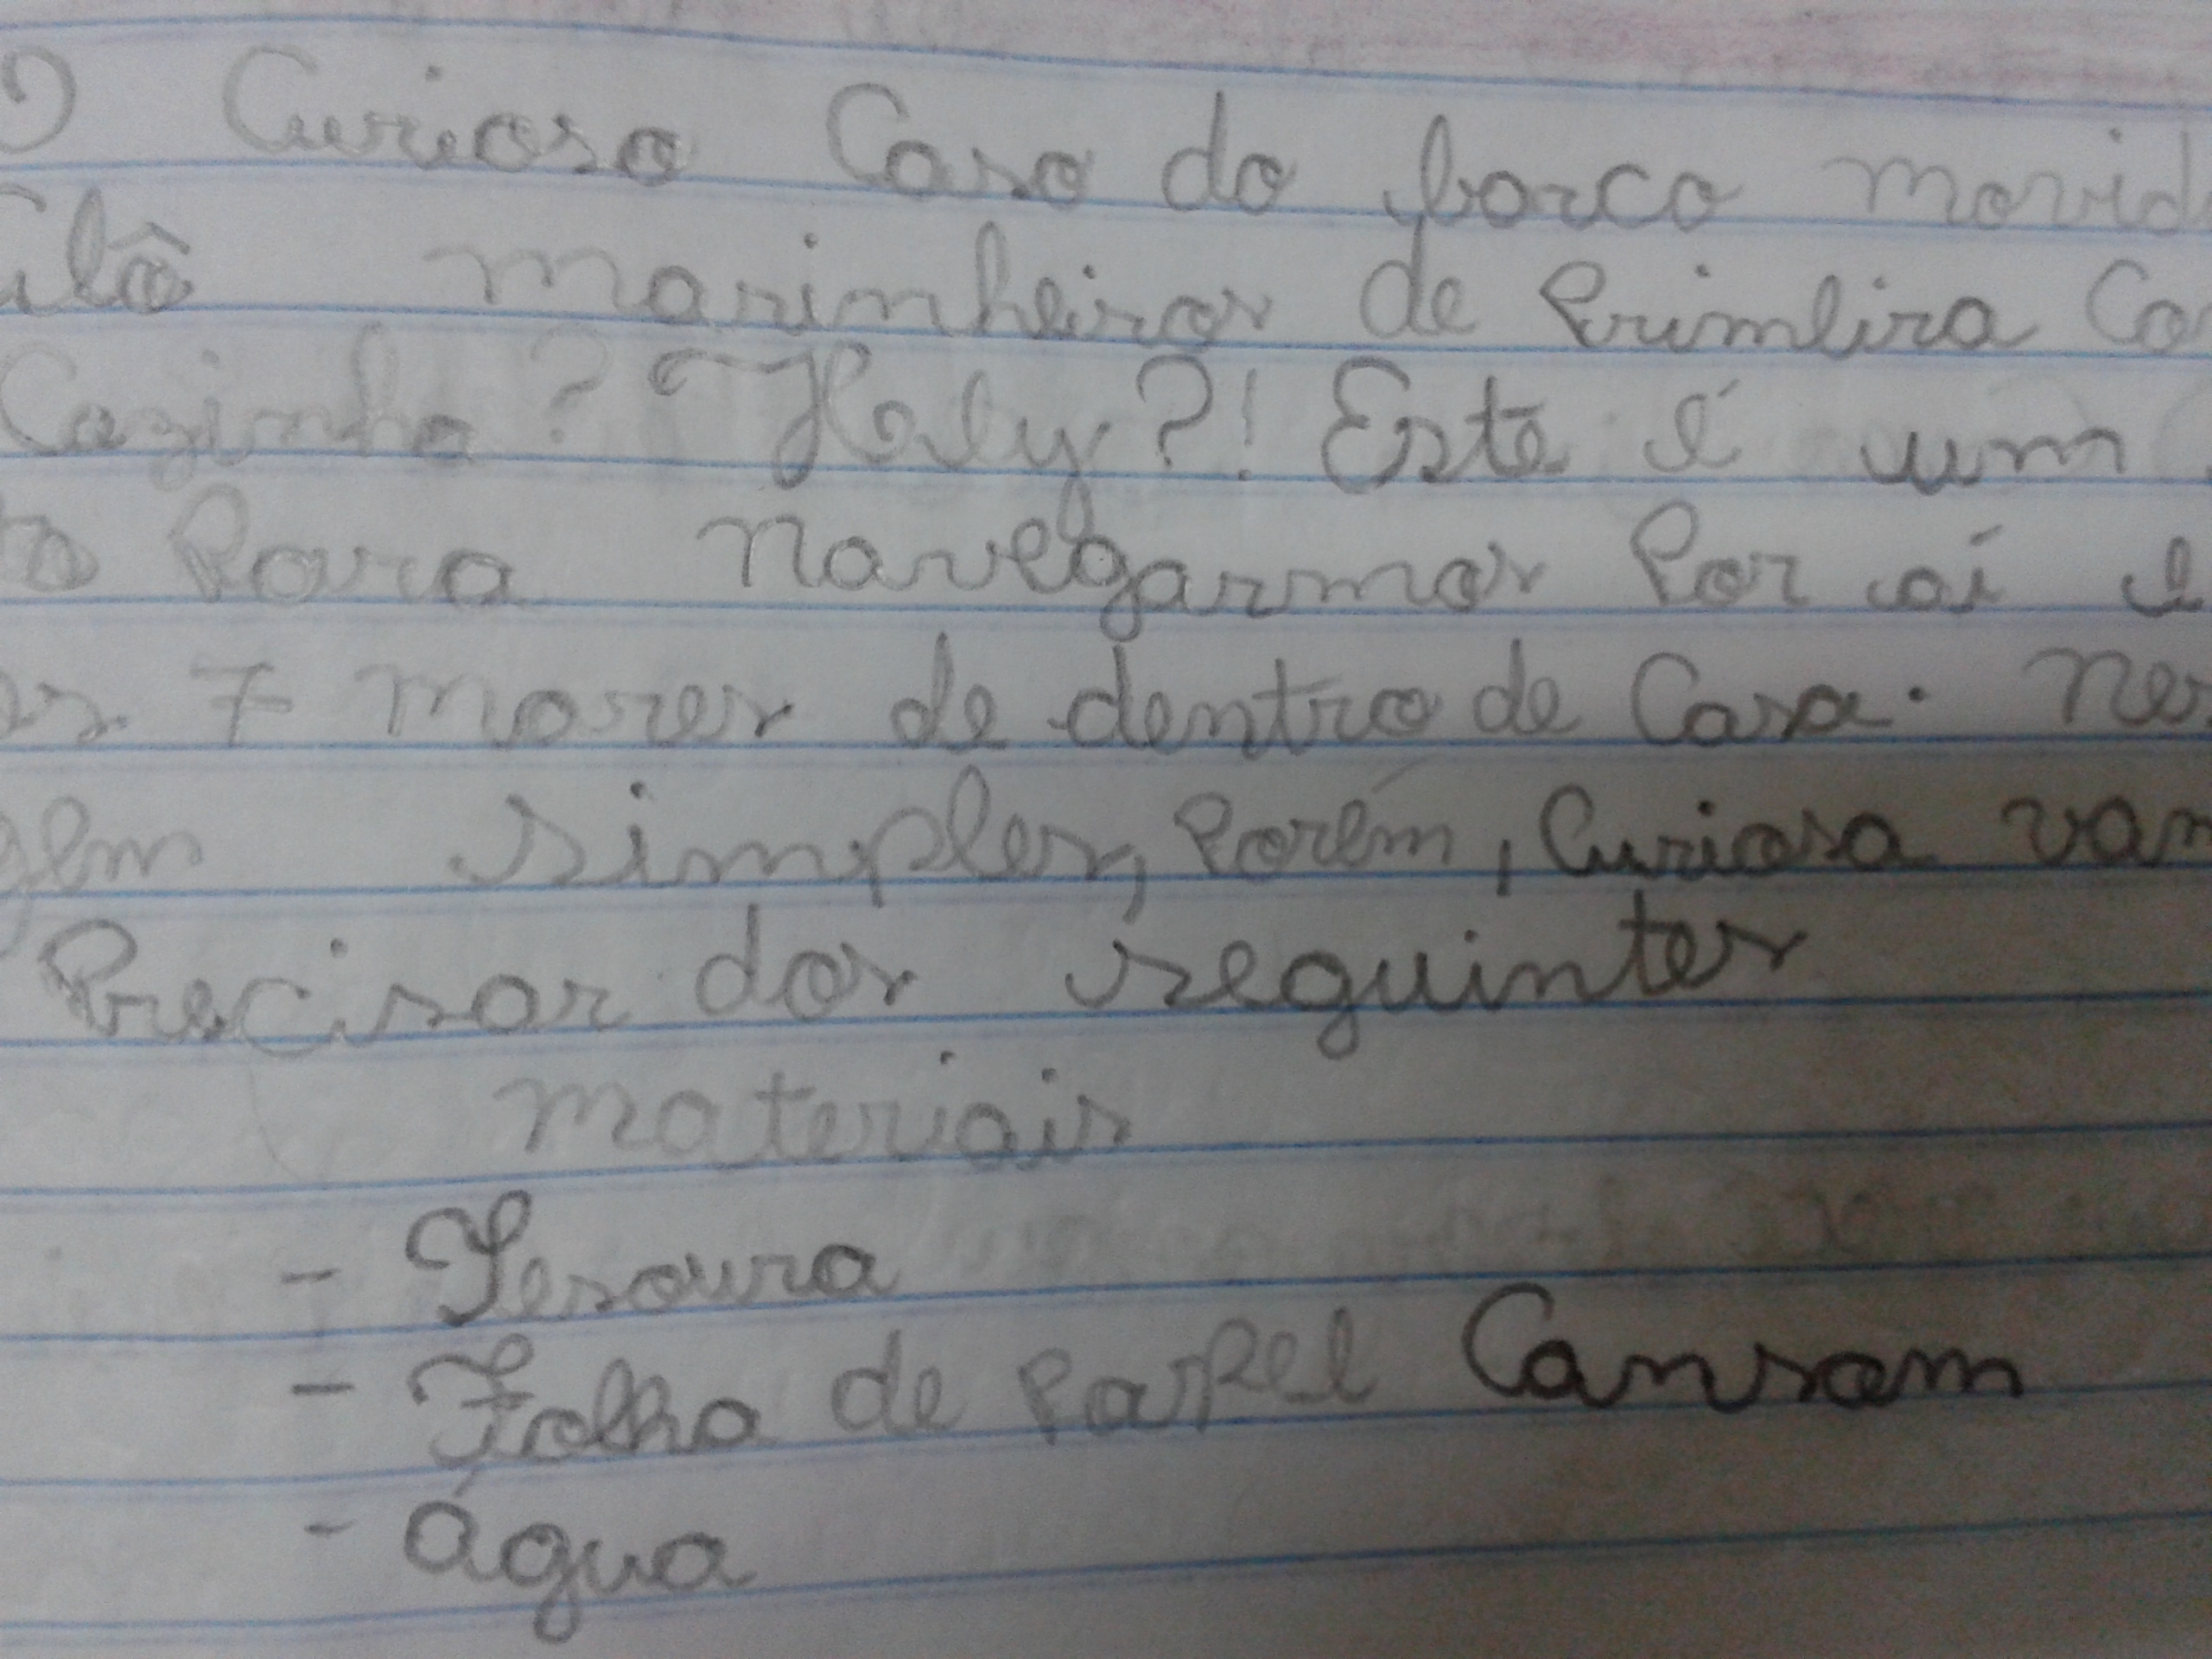 O Curioso Caso do barco movid
ulô marinheiros de Primeira Co
Cozinha? Holy?! Este é um
to Para navegarmos Por aí e
os 7 mares de dentro de Casa. Nes
gem simples, Porém, Curiosa vam
Precisar dos seguintes
materiais
- Tesoura
- Folha de Papel Cansam
- água